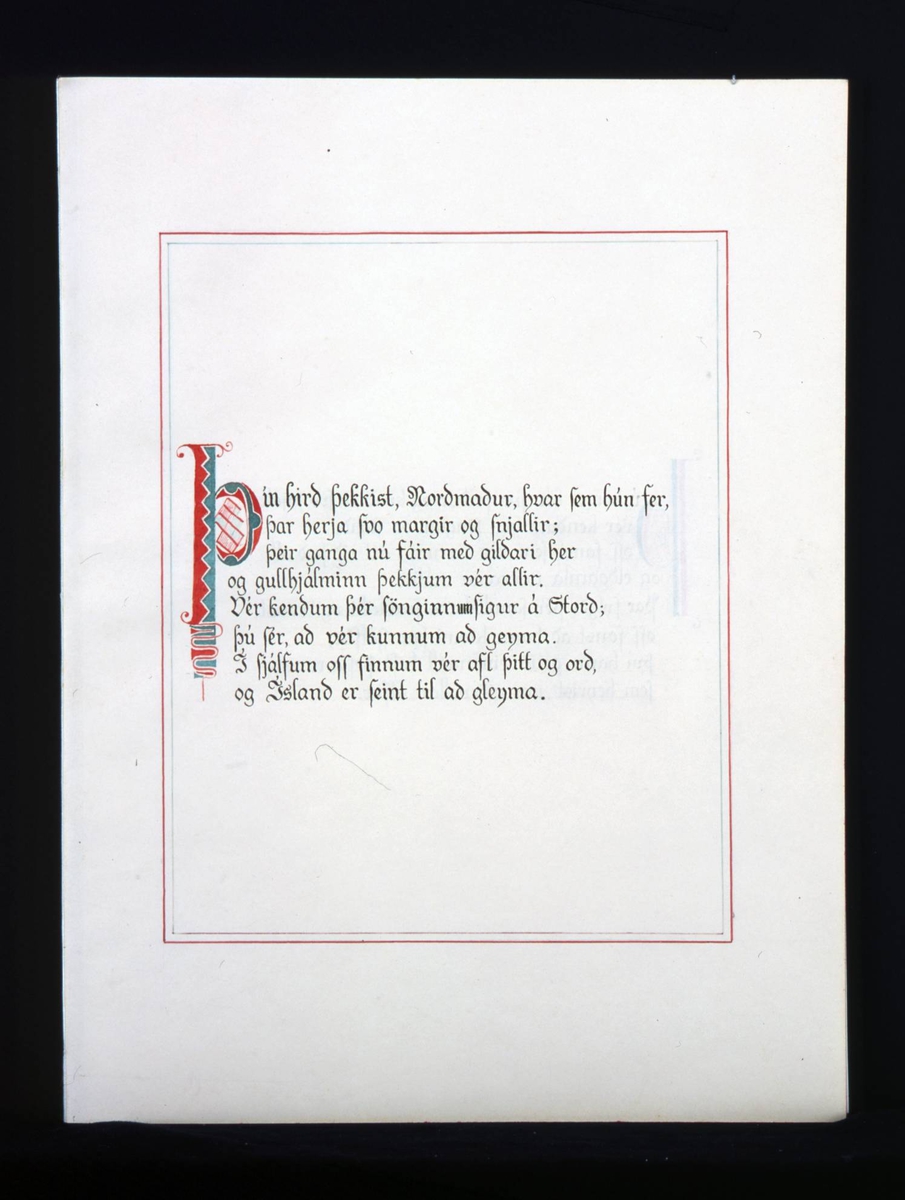 Þín hird þekkist, Nordmadur, hvar sem hún fer,
þar herja svo margir og snjallir;
þeir ganga nú fáir med gildari her
og gullhjálminn þekkjum vér allir.
Vér kendum þér sönginn um sigur á Stord;
þú sér, ad vér kunnum ad geyma.
Í sjálfum oss finnum vér afl þitt og ord,
og Ísland er seint til ad gleyma.